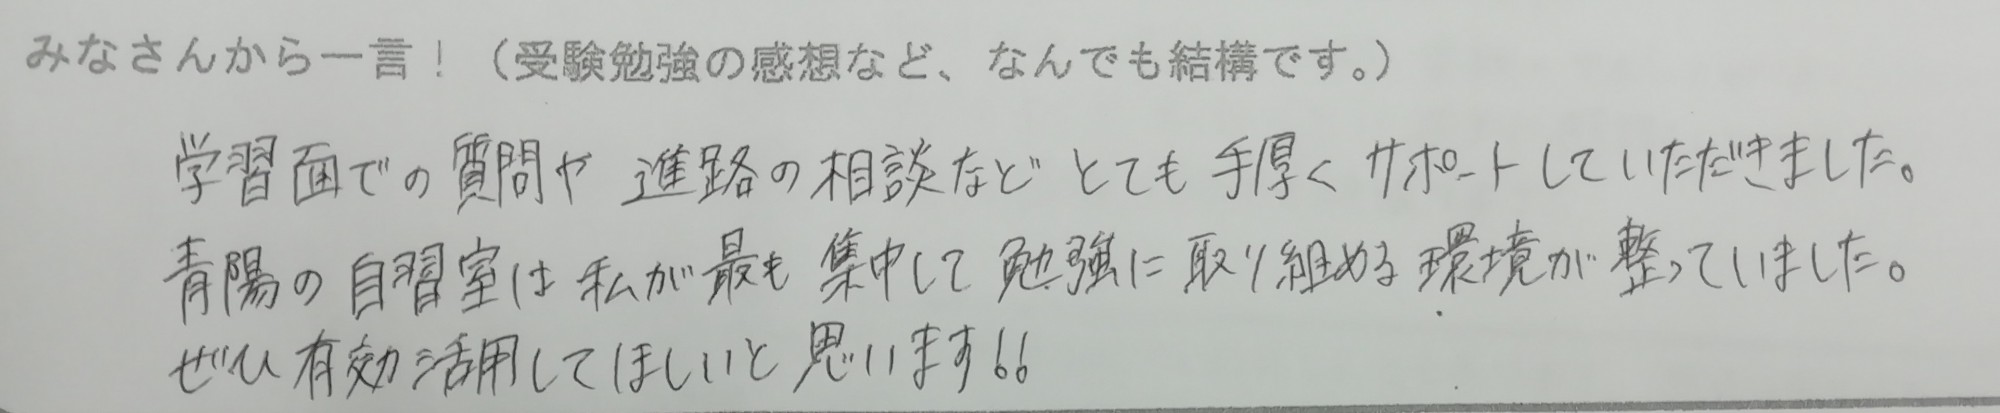 みなさんから一言！（受験勉強の感想など、なんでも結構です。）
学習面での質問や進路の相談などとても手厚くサポートしていただきました。
青陽の自習室は私が最も集中して勉強に取り組める環境が整っていました。
ぜひ有効活用してほしいと思います!!